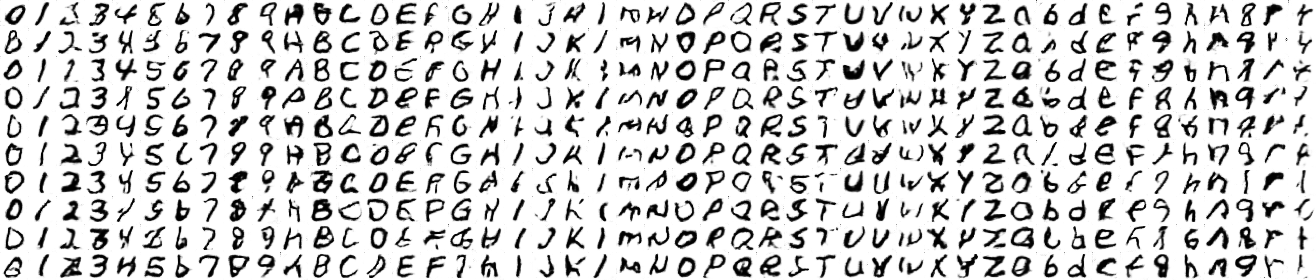 0 1 3 3 4 8 6 7 8 9 A B C D E F G H I J K I m W O P Q R S T U V W X Y Z a b d e f 9 h n 8 r t
0 1 2 3 4 5 6 7 8 9 A B C D E F G H I J K I m N O P Q R S T U V W X Y Z a b d e f g h n 9 r t
0 1 2 3 4 5 6 7 8 9 A B C D E F G H I J K I m N O P Q R S T U V W X Y Z a b d e f 9 b n 9 r t
0 1 2 3 4 5 6 7 8 9 A B C D e F G H I J K I m N O P Q R S T U V W X Y Z a b d e f 8 h n 9 r t
0 1 2 3 4 5 6 7 8 9 A B C D E F G N I J K I m N Q P Q R S T U V W X Y Z a b d e f 8 h n a r t
0 1 2 3 4 5 6 7 9 9 A B C O 8 F G H I J K I m N O P Q R S T d d W X Y Z a b d e f t h n 9 r t
0 1 2 3 4 5 6 7 8 9 A B C D E F G A I S h I m A O P Q R S T U U W X Y Z a b d e r 9 h n 1 r l
0 1 2 3 4 5 6 7 8 A A B C D E P G H I J K I m N O P Q R S T U V W X Y Z a b d e e 9 h n 9 r t
0 1 2 3 4 5 6 7 8 9 A B C D E F G H I J K I m N O P Q R S T U V W X Y Z a b d e f 1 6 n 8 r t
0 1 2 3 4 5 6 7 8 9 A B C D E F G m I J K I m N O P Q R S T U V W X Y Z a b d e f g h n 9 r t